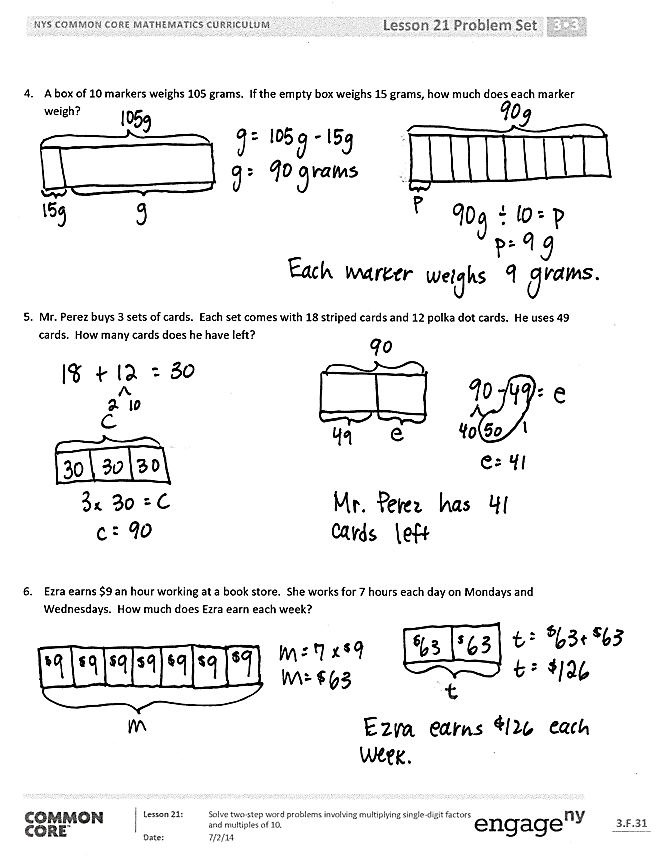 NYS COMMON CORE MATHEMATICS CURRICULUM
Lesson 21 Problem Set 3•3
4. A box of 10 markers weighs 105 grams. If the empty box weighs 15 grams, how much does each marker
weigh?
105g
15g
g
g = 105g - 15g
g = 90 grams
90g
P
90g ÷ 10 = P
P = 9g
Each marker weighs 9 grams.
5. Mr. Perez buys 3 sets of cards. Each set comes with 18 striped cards and 12 polka dot cards. He uses 49
cards. How many cards does he have left?
18 + 12 = 30
2 10
C
30 30 30
3 x 30 = C
C = 90
90
49 e
90 - 49 = e
40 50 1
e = 41
Mr. Perez has 41
cards left
6. Ezra earns $9 an hour working at a book store. She works for 7 hours each day on Mondays and
Wednesdays. How much does Ezra earn each week?
$9 $9 $9 $9 $9 $9 $9
m
m = 7 x $9
m = $63
$63 $63
t
t = $63 + $63
t = $126
Ezra earns $126 each
week.
COMMON
CORE™
Lesson 21:
Solve two-step word problems involving multiplying single-digit factors
and multiples of 10.
Date:
7/2/14
engage ny
3.F.31